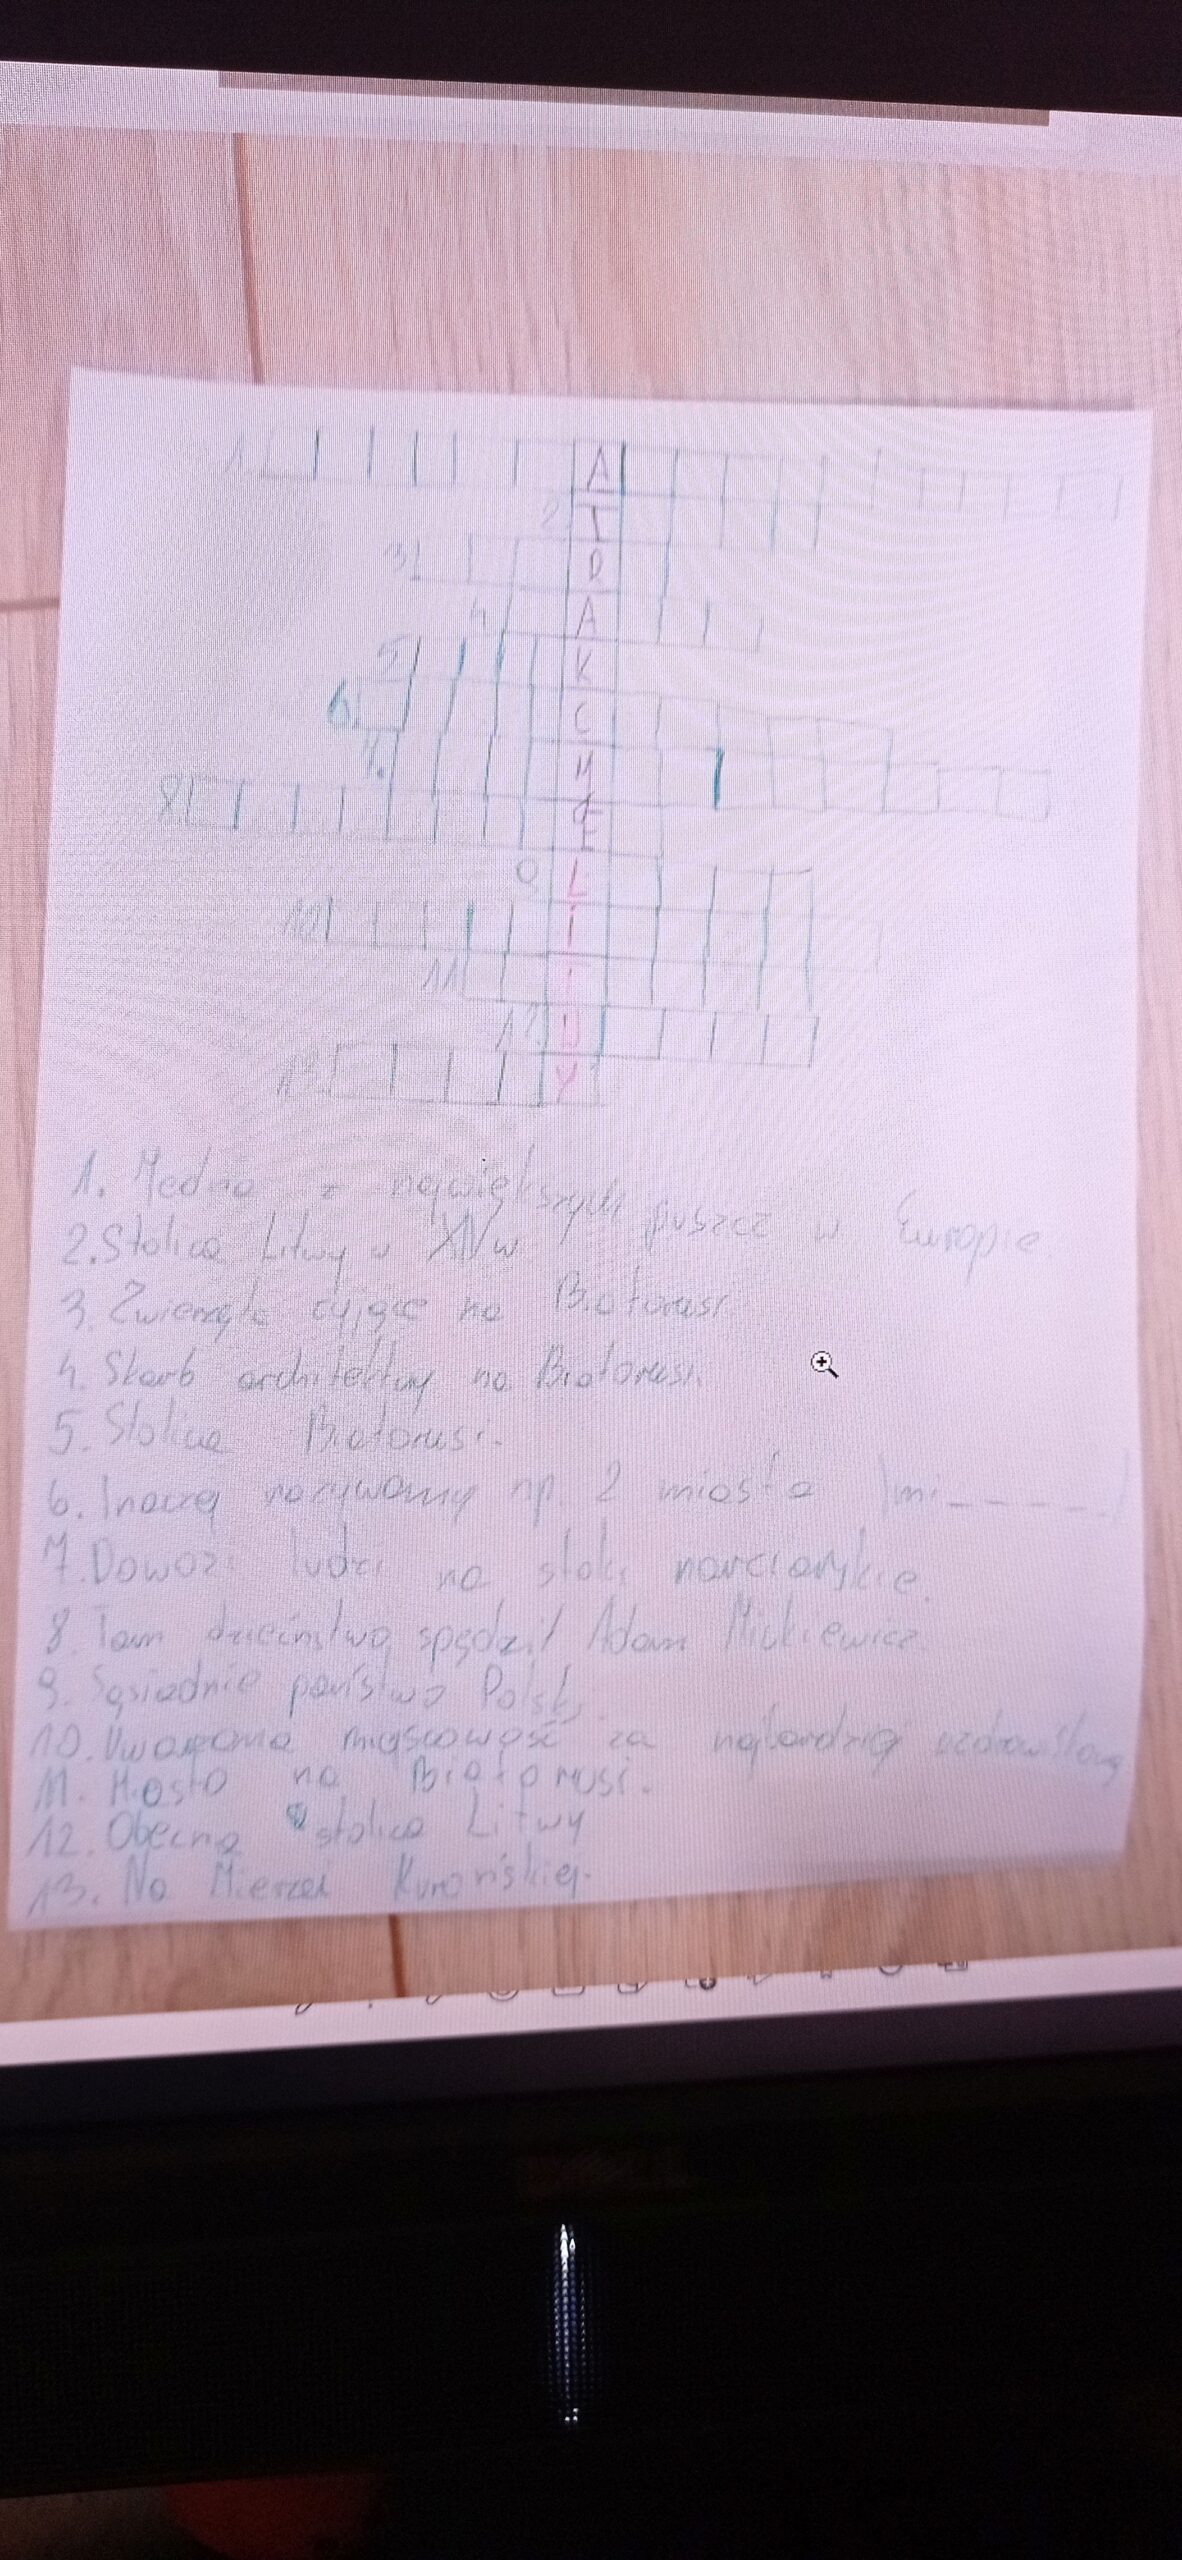 1 A
2 T
3 D
4 A
5 K
6 C
7. M
8 E
9 L
10 I
11 T
12 U
13 Y
1. Jedna z największych puszcz w Europie
2. Stolica Litwy w XIV w
3. Zwierzęta żyjące na Białorusi.
4. Skarb architektury na Białorusi.
5. Stolica Białorusi.
6. Inaczej nazywamy np. 2 miasta (mi_ _ _ _ _)
7. Dowozi ludzi na stoki narciarskie.
8. Tam dzieciństwo spędził Adam Mickiewicz.
9. Sąsiednie państwo Polski.
10. Uważana miejscowość za najbardziej uzdrowiskową
11. Miasto na Białorusi.
12. Obecna stolica Litwy
13. Na Mierzei Kurońskiej.